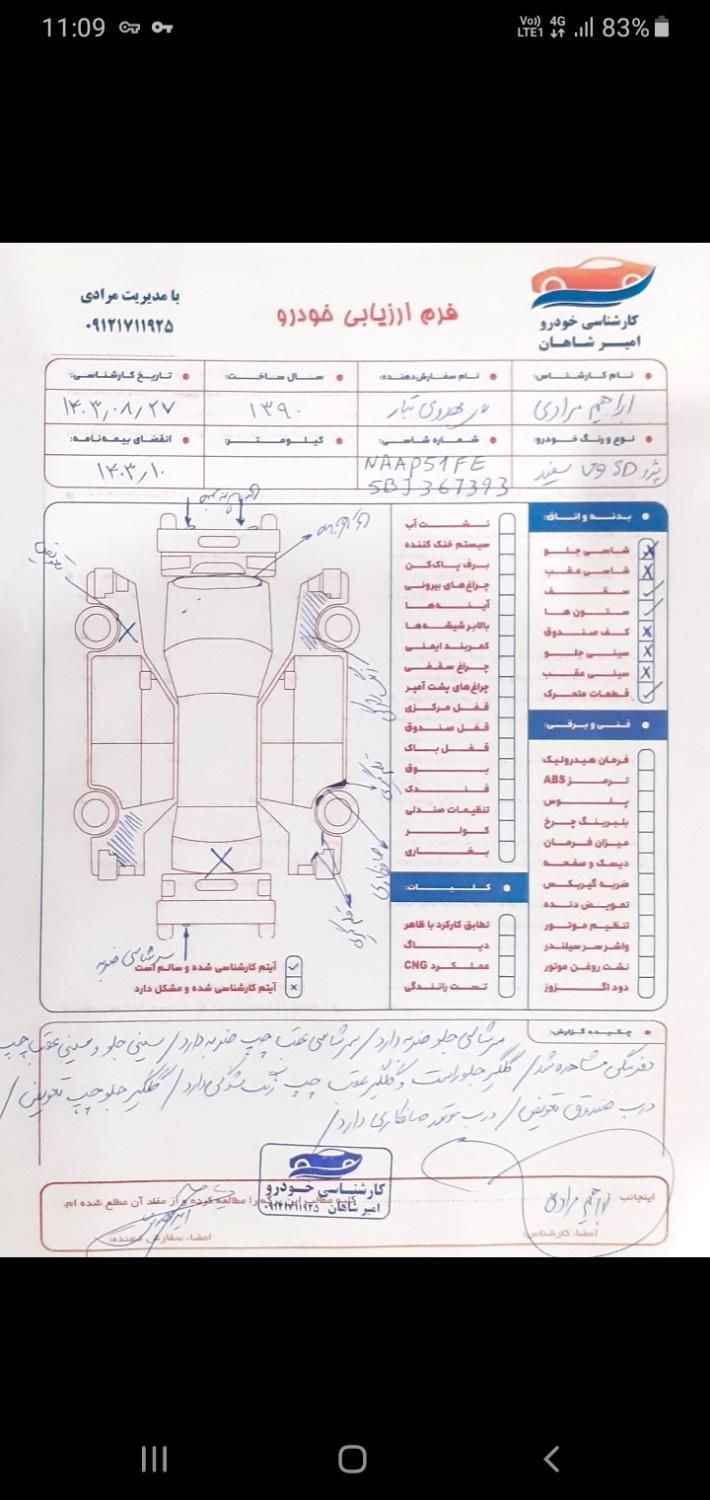 11:09
Vo)) LTE1 4G 83%
کارشناسی خودرو
امیر شاهان
فرم ارزیابی خودرو
با مدیریت مرادی
۰۹۱۲۱۷۱۱۹۲۵
نام کارشناس:
نام سفارش‌دهنده:
سال ساخت:
تاریخ کارشناسی:
ابراهیم مرادی
۱۳۹۰
۱۴۰۳/۰۸/۲۷
نوع و رنگ خودرو:
شماره شاسی:
کیلومتر:
انقضای بیمه‌نامه:
پژو SD وی سفید
NAAP51FE
5BJ367393
۱۴۰۳/۱۰
بدنه و اتاق:
شاسی جلو X
شاسی عقب X
سقف ✓
ستون ها ✓
کف صندوق X
سینی جلو X
سینی عقب X
قطعات متحرک ✓
فنی و برقی:
فرمان هیدرولیک
ترمز ABS
پلوس
بلبرینگ چرخ
میزان فرمان
دیسک و صفحه
ضربه گیربکس
تعویض دنده
تنظیم موتور
واشر سر سیلندر
نشت روغن موتور
دود اگزوز
نشت آب
سیستم خنک کننده
برف پاک‌کن
چراغ‌های بیرونی
آینه‌ها
بالابر شیشه‌ها
کمربند ایمنی
چراغ سقفی
چراغ‌های پشت آمپر
قفل مرکزی
قفل صندوق
قفل باک
بوق
فندک
تنظیمات صندلی
کولر
بخاری
کلیات:
تطابق کارکرد با ظاهر
دیاگ
عملکرد CNG
تست رانندگی
تعویض
صافکاری
سرشاسی ضربه
آیتم کارشناسی شده و سالم است ✓
آیتم کارشناسی شده و مشکل دارد ×
چکیده گزارش:
سرشاسی جلو ضربه دارد / سرشاسی عقب چپ ضربه دارد / سینی جلو و سینی عقب چپ
مشاهده شد / گلگیر جلو راست و گلگیر عقب چپ رنگ شدگی دارد / گلگیر جلو چپ تعویض /
درب صندوق تعویض / درب موتور صافکاری دارد /
کارشناسی خودرو
امیر شاهان ۰۹۱۲۱۷۱۱۹۲۵
اینجانب
کلیه مطالب این برگه را مطالعه کرده و از مفاد آن مطلع شده ام.
ابراهیم مرادی
امضاء کارشناس:
امضاء سفارش دهنده: